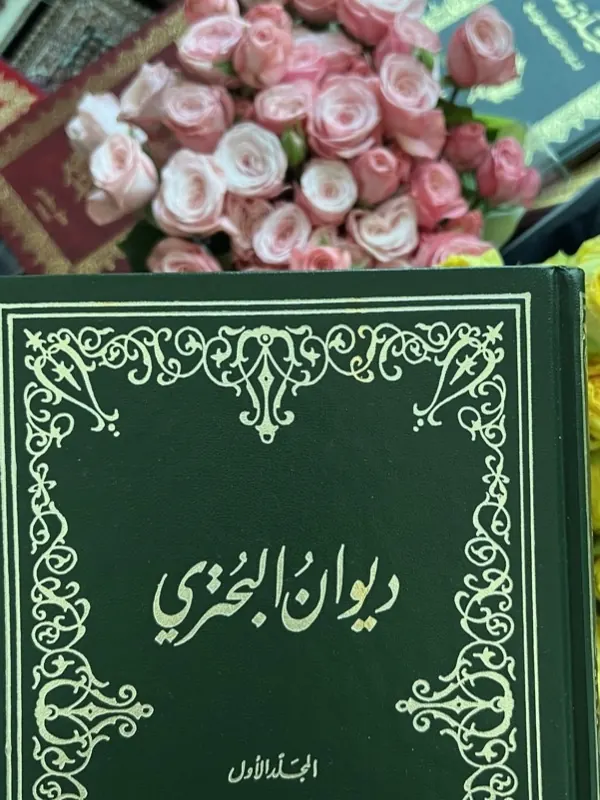 ديوانُ البُحتري
المجلّد الأول